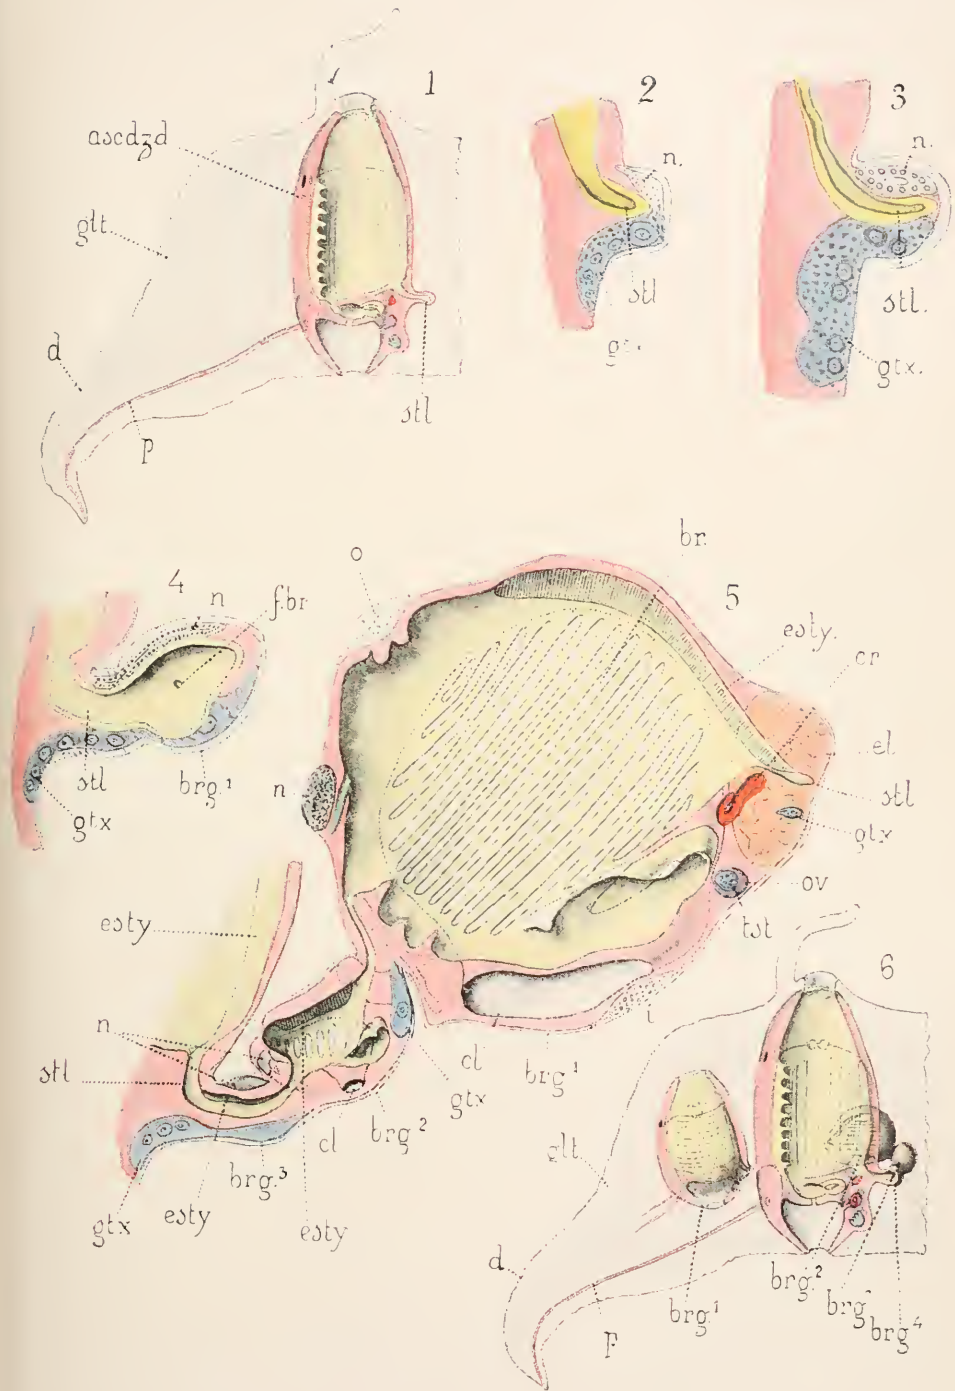 1
ascdzd
glt.
d
p
stl
2
n.
stl
gtx
3
n.
stl.
gtx.
4
n
f.br
stl
brg.¹
gtx
o
br.
5
esty.
cr
el.
stl
gtx
ov
tst
n
i
cl
brg¹
gtx
brg²
cl
esty
n
stl
brg.³
gtx
esty
esty
6
glt.
d
p
brg¹
brg.²
brg⁴